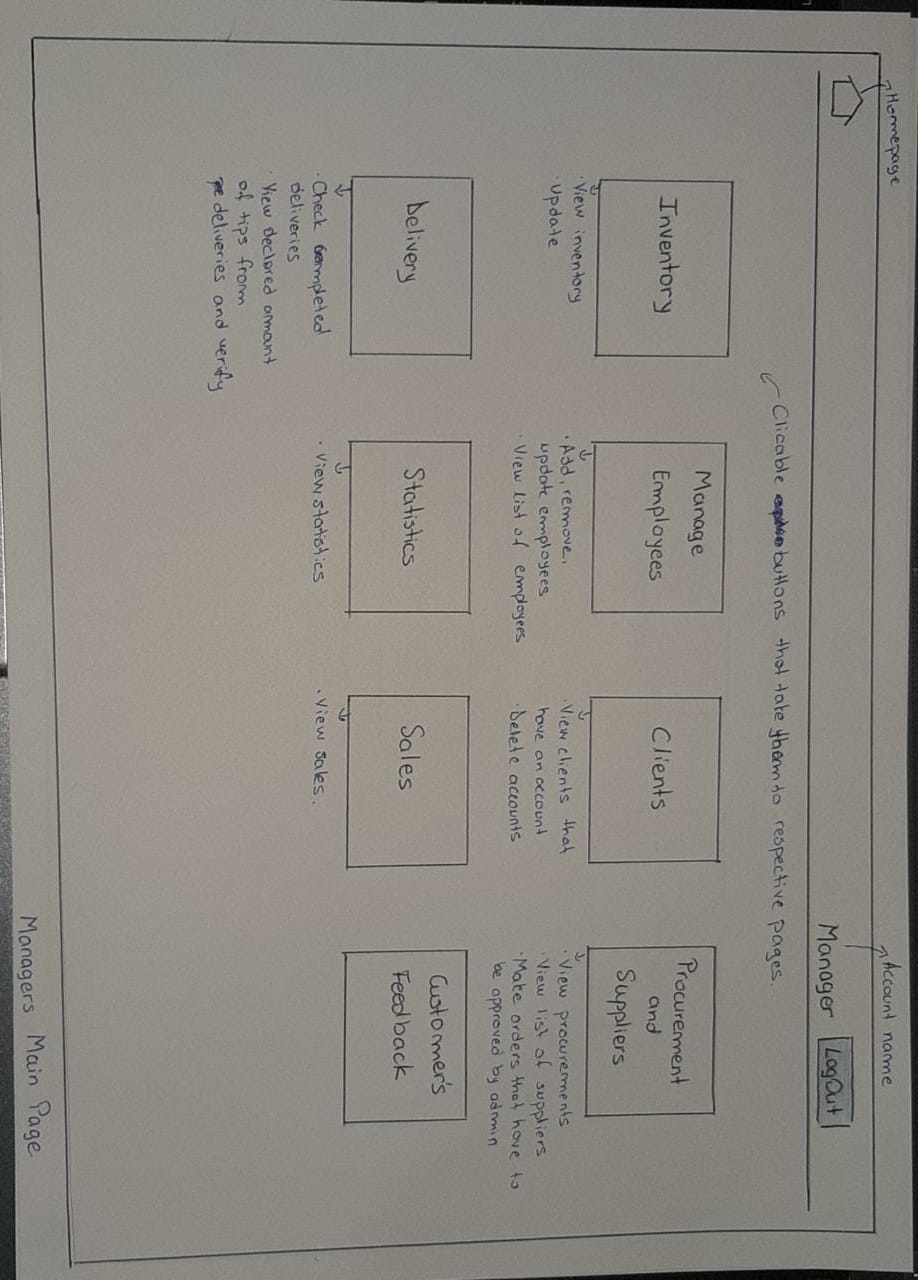 Homepage
Account name
Manager LogOut
Clicable buttons that take them to respective pages.
Inventory
· View inventory
· Update
Manage
Employees
· Add, remove,
update employees
· View list of employees
Clients
· View clients that
have an account
· Delete accounts
Procurement
and
Suppliers
· View procurements
· View list of suppliers
· Make orders that have to
be approved by admin
Delivery
· Check completed
deliveries
· View declared amount
of tips from
deliveries and verify
Statistics
· View statistics
Sales
· View sales.
Customer's
Feedback
Managers Main Page